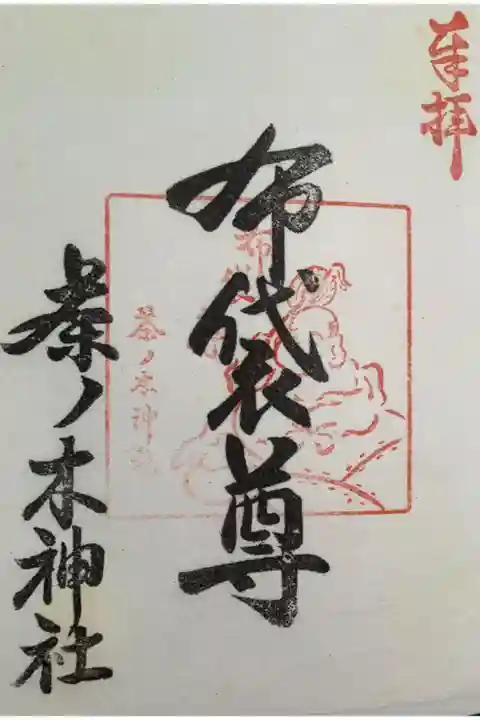 奉拝
布袋尊
布袋
茶ノ木神社
茶ノ木神社